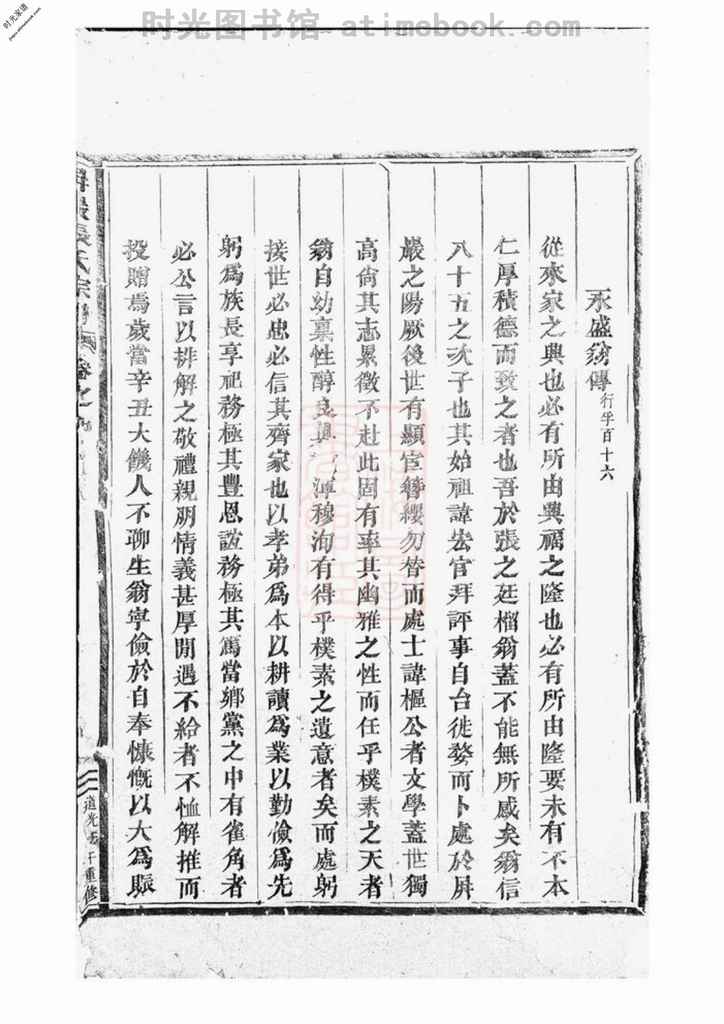 时光图书馆 atimebook.com
时光家谱
永盛翁傳行孚百十六
從來家之興也必有所由興福之隆也必有所由隆要未有不本
仁厚積德而致之者也吾於張之廷榴翁蓋不能無所感矣翁信
八十五之次子也其始祖諱宏官拜評事自台徙婺而卜處於屏
巖之陽厥後世有顯宦簪纓勿替而處士諱樞公者文學蓋世獨
高尚其志累徵不赴此固有率其幽雅之性而任乎樸素之天者
翁自幼稟性醇良 渾穆洵有得乎樸素之遺意者矣而處躬
接世必忠必信其齊家也以孝弟爲本以耕讀爲業以勤儉爲先
躬爲族長享祀務極其豐恩誼務極其篤當鄉黨之中有雀角者
必公言以排解之敬禮親朋情義甚厚閒遇不給者不恤解推而
投贈焉歲當辛丑大饑人不聊生翁寧儉於自奉慷慨以大爲賑
屏巖張氏宗譜 卷之
道光 午重修